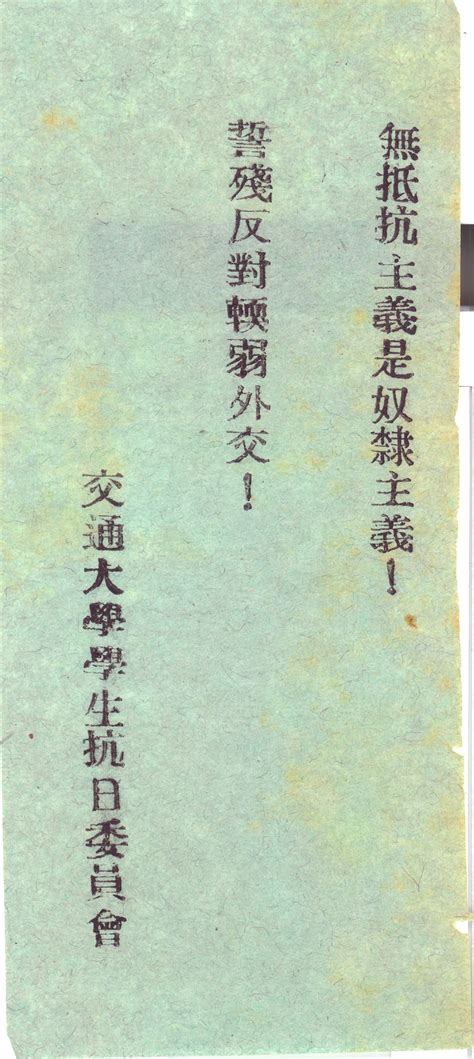 無抵抗主義是奴隸主義！
誓殘反對輭弱外交！
交通大學學生抗日委員會